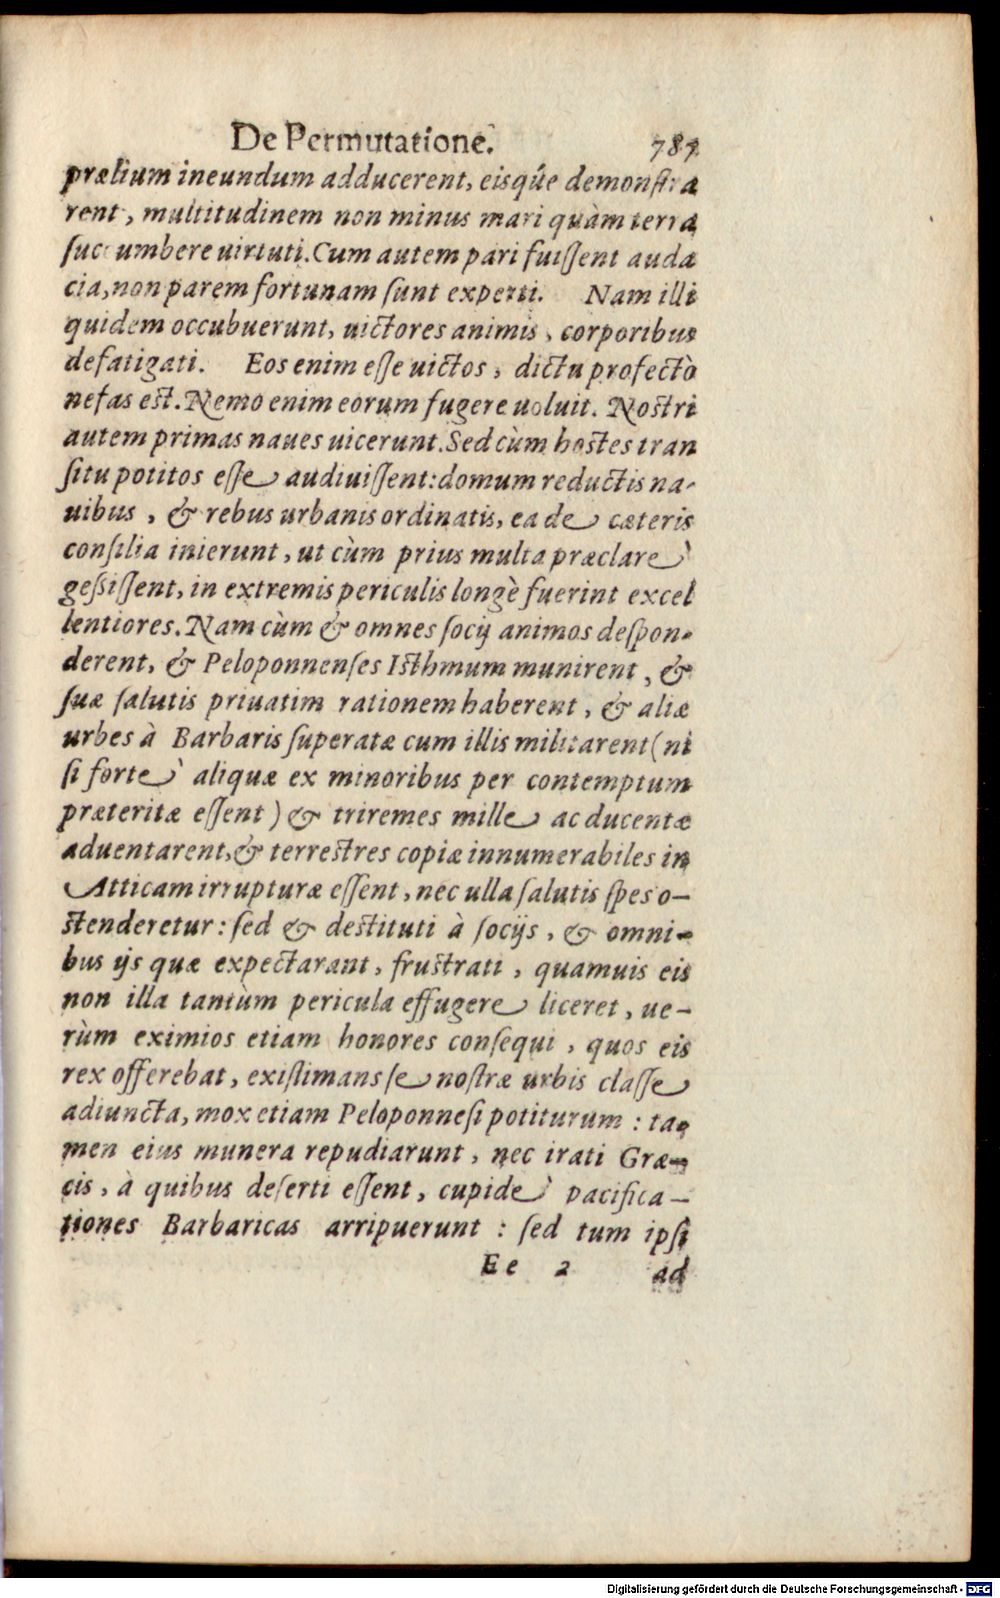 De Permutatione. 787
prælium ineundum adducerent, eisq́ue demonstra
rent, multitudinem non minus mari quàm terra
succumbere uirtuti. Cum autem pari fuissent auda
cia, non parem fortunam sunt experti. Nam illi
quidem occubuerunt, uictores animis, corporibus
defatigati. Eos enim esse uictos, dictu profectò
nefas est. Nemo enim eorum fugere uoluit. Nostri
autem primas naues uicerunt. Sed cùm hostes tran
situ potitos esse audiuissent: domum reductis na-
uibus, & rebus urbanis ordinatis, ea de cæteris
consilia inierunt, ut cùm prius multa præclarè
gessissent, in extremis periculis longè fuerint excel
lentiores. Nam cùm & omnes socij animos despon-
derent, & Peloponnenses Isthmum munirent, &
suæ salutis priuatim rationem haberent, & aliæ
urbes à Barbaris superatæ cum illis militarent (ni
si fortè aliquæ ex minoribus per contemptum
præteritæ essent) & triremes mille ac ducentæ
aduentarent, & terrestres copiæ innumerabiles in
Atticam irrupturæ essent, nec ulla salutis spes o-
stenderetur: sed & destituti à socijs, & omni-
bus ijs quæ expectarant, frustrati, quamuis eis
non illa tantùm pericula effugere liceret, ue-
rùm eximios etiam honores consequi, quos eis
rex offerebat, existimans se nostræ urbis classe
adiuncta, mox etiam Peloponnesi potiturum: ta-
men eius munera repudiarunt, nec irati Græ-
cis, à quibus deserti essent, cupidè pacifica-
tiones Barbaricas arripuerunt: sed tum ipsi
Ee 2 ad
Digitalisierung gefördert durch die Deutsche Forschungsgemeinschaft - DFG